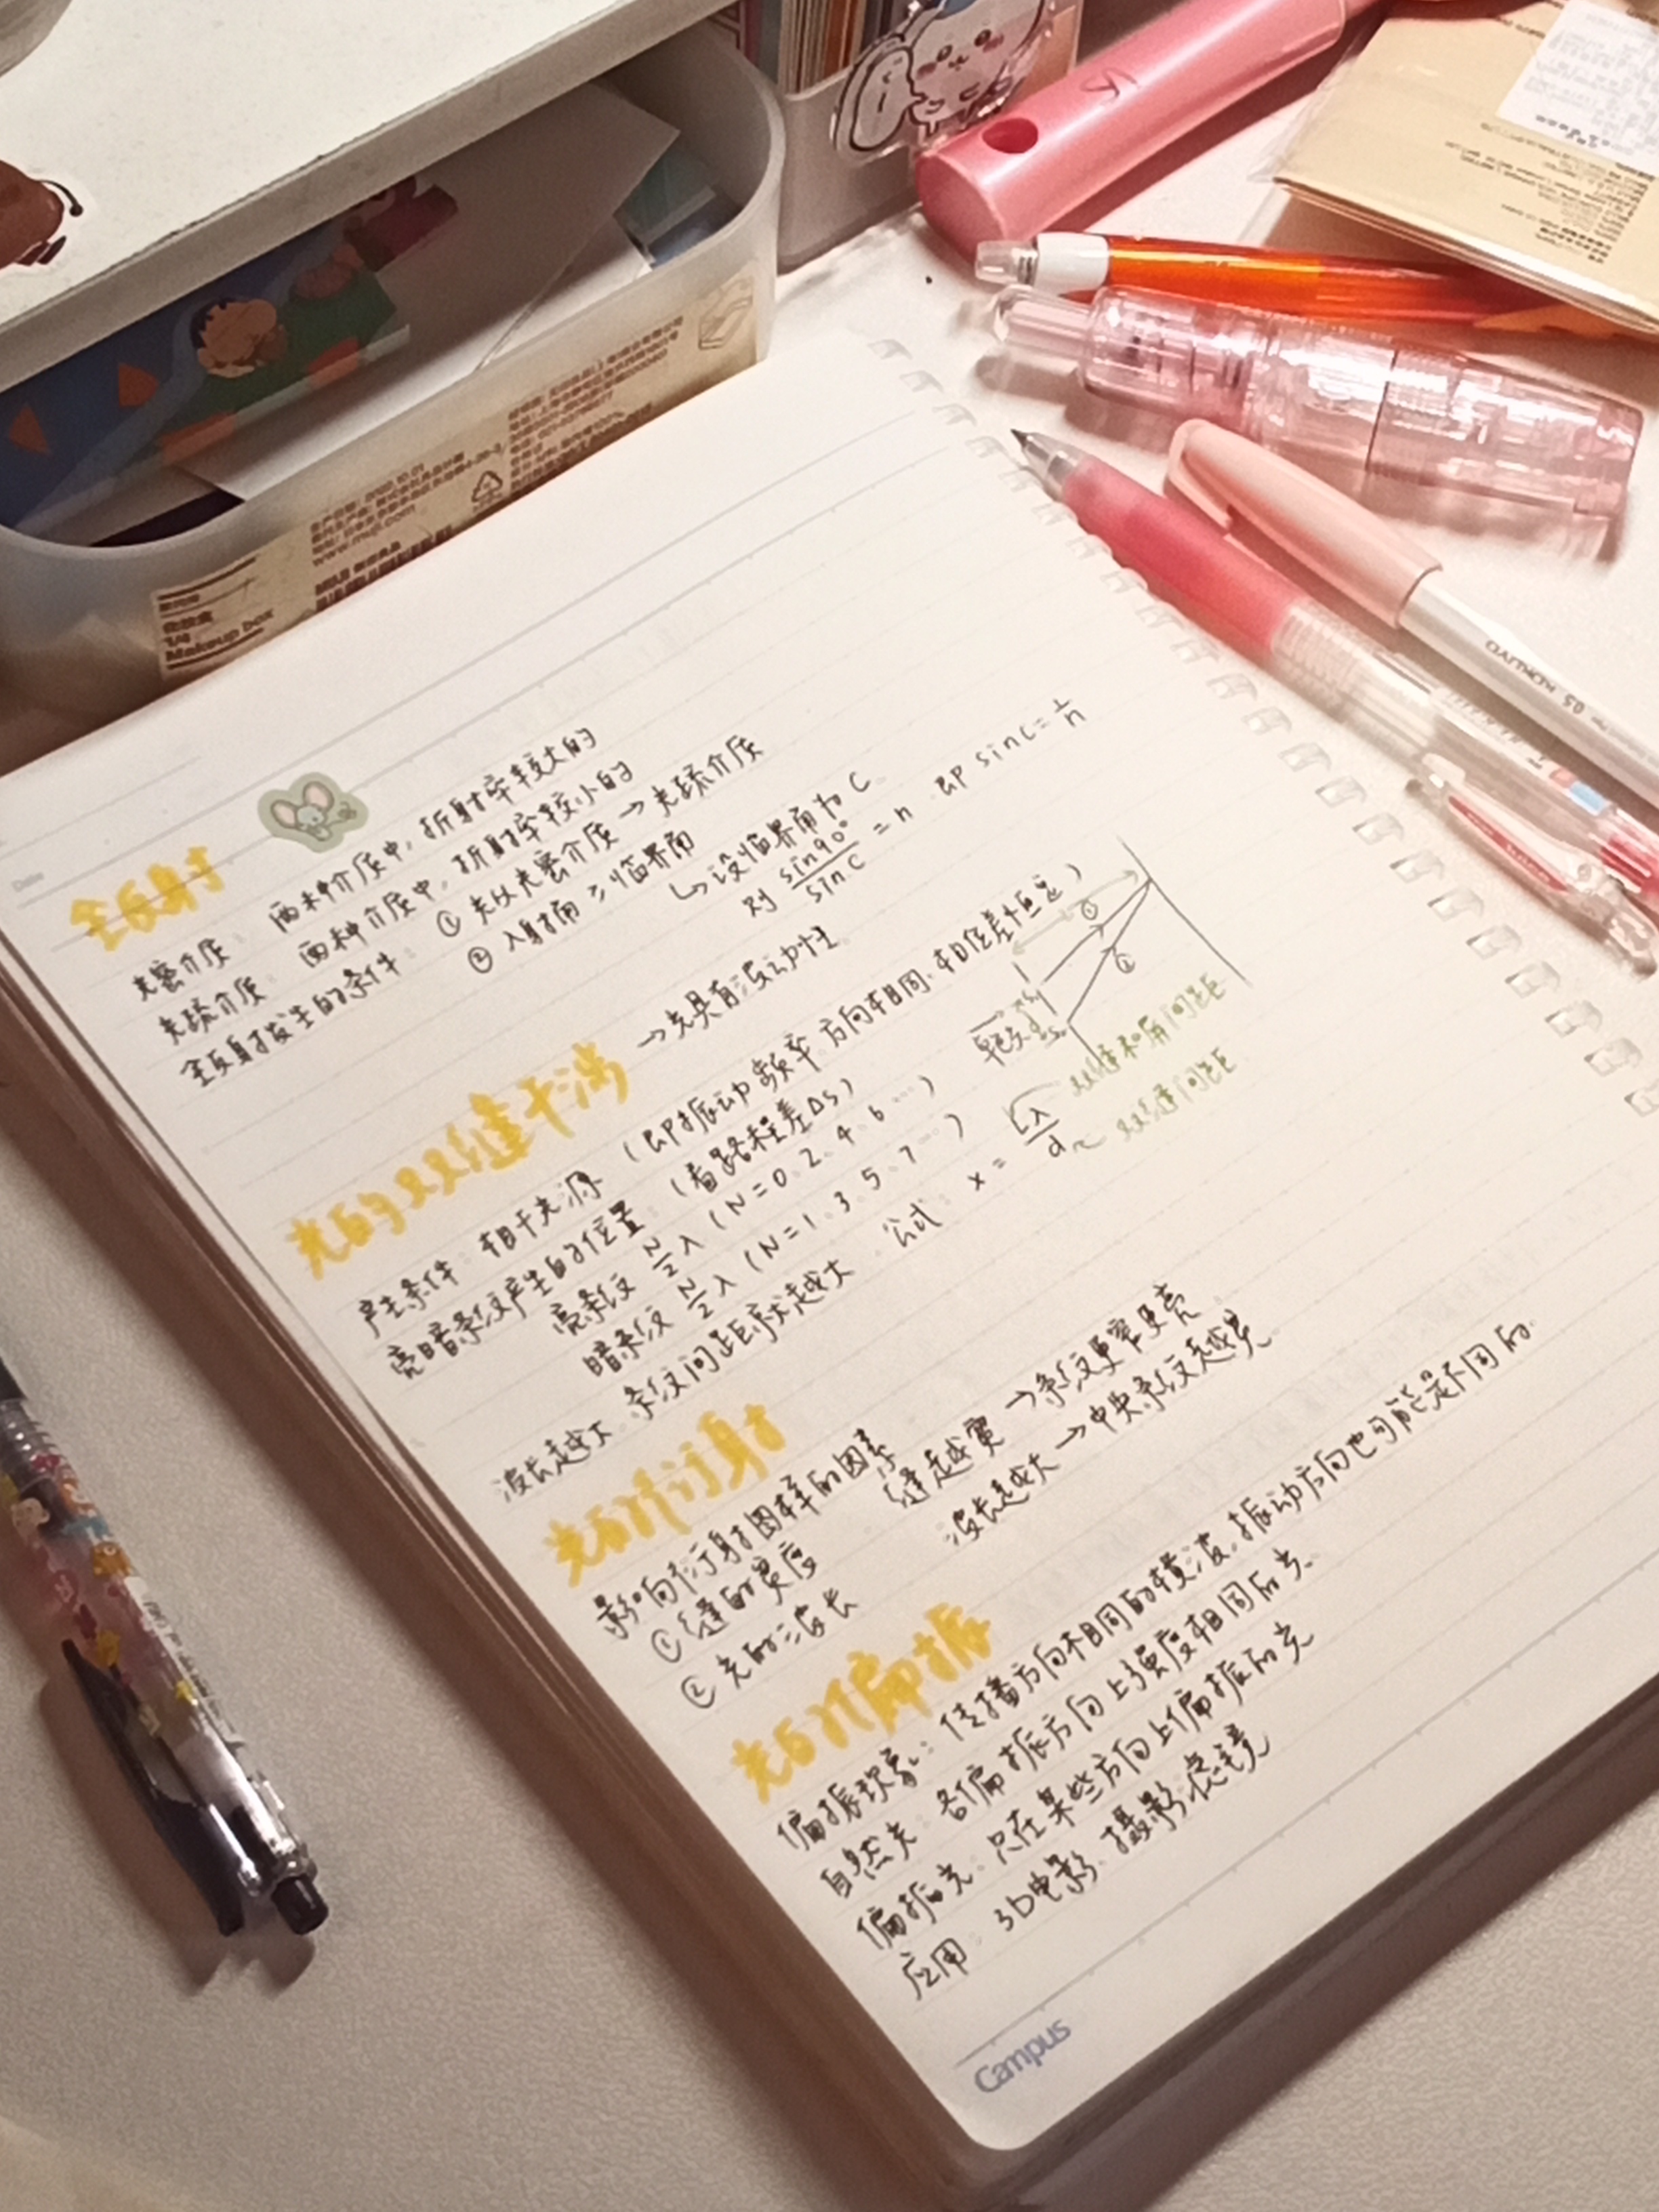 Makeup box
www.muji.com
Date
全反射
光密介质：两种介质中，折射率较大的
光疏介质：两种介质中，折射率较小的
全反射发生的条件：① 光从光密介质→光疏介质
② 入射角≥临界角
↳设临界角为C
则 sin90°/sinC = n 即 sinC = 1/n
光的双缝干涉 →光具有波动性
产生条件：相干光源（即振动频率、方向相同，相位差恒定）
亮暗条纹产生的位置：（看路程差Δs）
亮条纹 N/2 λ (N=0、2、4、6…)
暗条纹 N/2 λ (N=1、3、5、7…)
单色光
①
②
波长越大，条纹间距就越大，公式：x = Lλ/d
双缝和屏间距
双缝间距
光的衍射
影响衍射图样的因素
① 缝的宽度 缝越窄→条纹更宽更亮
② 光的波长 波长越大→中央条纹越宽
光的偏振
偏振现象：传播方向相同的横波，振动方向也可能是不同的
自然光：各偏振方向上强度相同的光
偏振光：只在某些方向上偏振的光
应用：3D电影、摄影滤镜
Campus